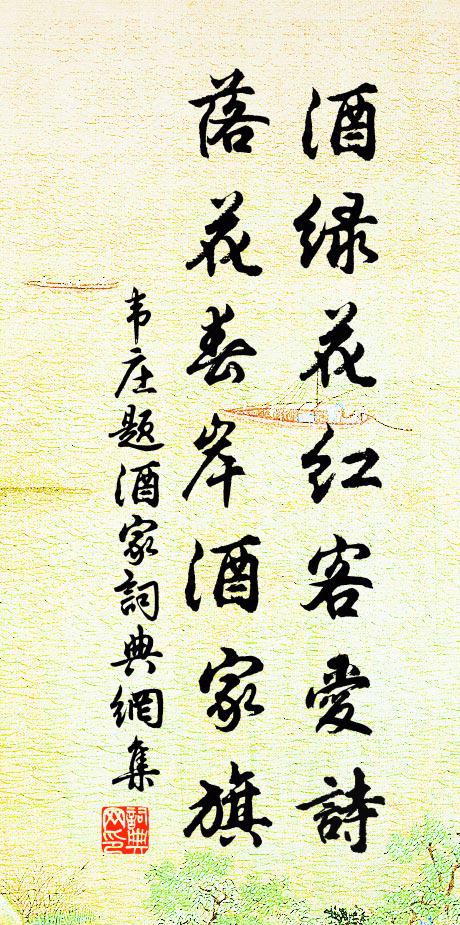 酒緑花紅客愛詩
落花春岸酒家旗
韦庄题酒家詞典網集
詞典网印